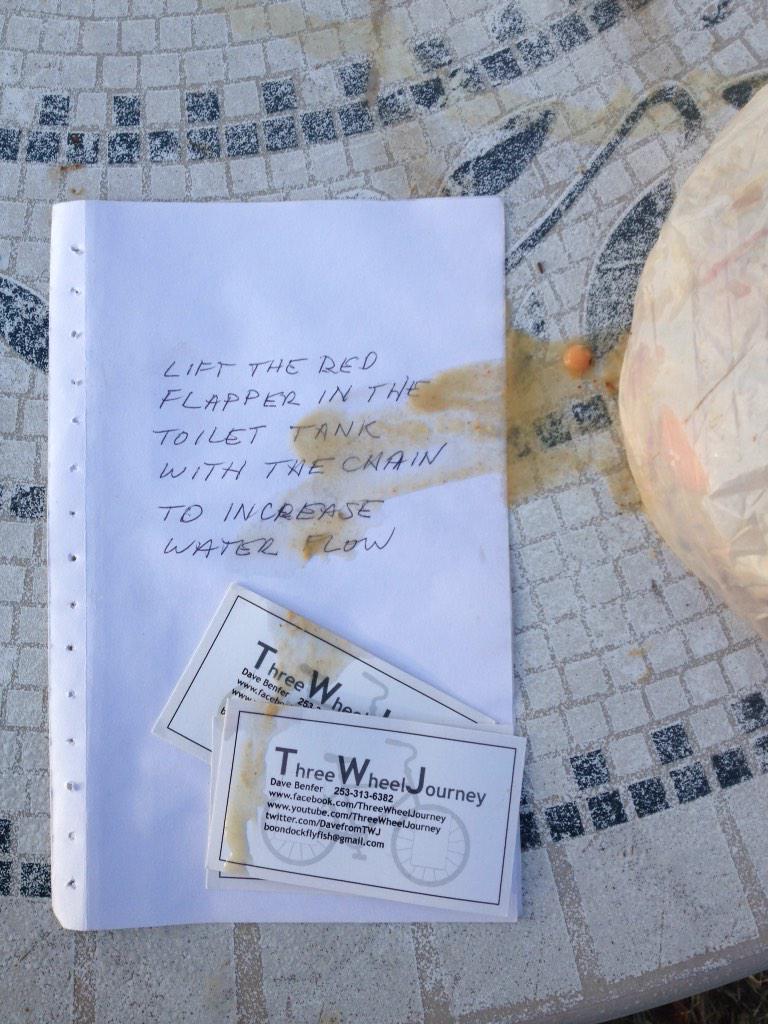 LIFT THE RED
FLAPPER IN THE
TOILET TANK
WITH THE CHAIN
TO INCREASE
WATER FLOW
Three Wheel
Dave Benfer 253
Three Wheel Journey
Dave Benfer 253-313-6382
www.facebook.com/ThreeWheelJourney
www.youtube.com/ThreeWheelJourney
twitter.com/DavefromTWJ
boondockflyfish@gmail.com